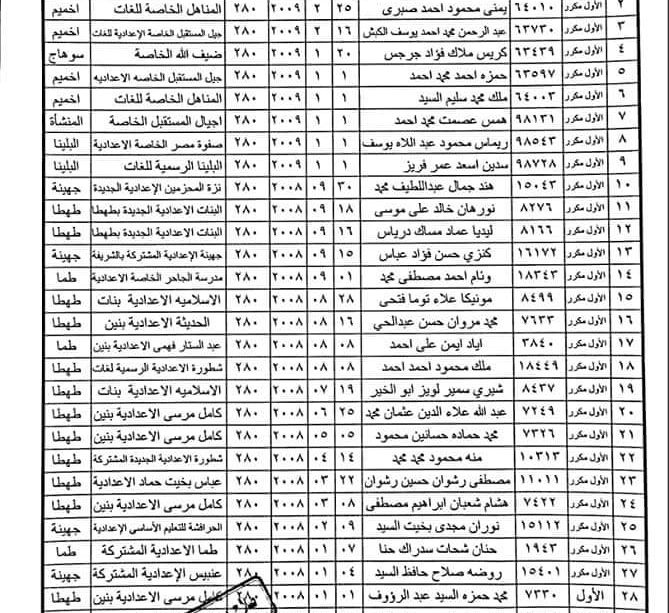 ٢ الأول مكرر ٦٤٠١٠ يمنى محمود احمد صبرى ٢٥ ٢ ٢٠٠٩ ٢٨٠ المناهل الخاصة للغات اخميم
٣ الأول مكرر ٦٣٧٣٠ عبد الرحمن محمد احمد يوسف الكبش ١٦ ٢ ٢٠٠٩ ٢٨٠ جيل المستقبل الخاصة الإعدادية للغات اخميم
٤ الأول مكرر ٦٣٤٣٩ كريس ملاك فؤاد جرجس ٢٠ ١ ٢٠٠٩ ٢٨٠ ضيف الله الخاصة سوهاج
٥ الأول مكرر ٦٣٥٩٧ حمزه احمد محمد احمد ١ ١ ٢٠٠٩ ٢٨٠ جيل المستقبل الخاصه الاعداديه اخميم
٦ الأول مكرر ٦٤٠٠٣ ملك محمد سليم السيد ١ ١ ٢٠٠٩ ٢٨٠ المناهل الخاصة للغات اخميم
٧ الأول مكرر ٩٨١٣١ همس عصمت محمد احمد ١ ١ ٢٠٠٩ ٢٨٠ اجيال المستقبل الخاصة المنشأة
٨ الأول مكرر ٩٨٥٤٣ ريماس محمود عبد اللاه يوسف ١ ١ ٢٠٠٩ ٢٨٠ صفوة مصر الخاصة الاعدادية البلينا
٩ الأول مكرر ٩٨٧٢٨ سدين اسعد عمر فريز ١ ١ ٢٠٠٩ ٢٨٠ البلينا الرسمية للغات البلينا
١٠ الأول مكرر ١٥٠٤٣ هند جمال عبداللطيف محمد ٣٠ ٠٩ ٢٠٠٨ ٢٨٠ نزة المحزمين الإعدادية الجديدة جهينة
١١ الأول مكرر ٨٢٧٦ نورهان خالد على موسى ١٨ ٠٩ ٢٠٠٨ ٢٨٠ البنات الاعدادية الجديدة بطهطا طهطا
١٢ الأول مكرر ٨١٦٦ ليديا عماد مساك درياس ١٦ ٠٩ ٢٠٠٨ ٢٨٠ البنات الاعدادية الجديدة بطهطا طهطا
١٣ الأول مكرر ١٦١٧٢ كنزي حسن فؤاد عباس ١٥ ٠٩ ٢٠٠٨ ٢٨٠ جهينة الإعدادية المشتركة بالشريفة جهينة
١٤ الأول مكرر ١٨٣٤٣ وئام احمد مصطفى محمد ٠١ ٠٩ ٢٠٠٨ ٢٨٠ مدرسة الجاحر الخاصة الاعدادية طما
١٥ الأول مكرر ٨٤٩٩ مونيكا علاء توما فتحى ٢٨ ٠٨ ٢٠٠٨ ٢٨٠ الاسلاميه الاعدادية بنات طهطا
١٦ الأول مكرر ٧٦٣٣ محمد مروان حسن عبدالحي ١٦ ٠٨ ٢٠٠٨ ٢٨٠ الحديثة الاعدادية بنين طهطا
١٧ الأول مكرر ٣٨٤٠ اياد ايمن على احمد ٠٨ ٠٨ ٢٠٠٨ ٢٨٠ عبد الستار فهمى الاعدادية بنين طما
١٨ الأول مكرر ١٨٤٤٩ ملك محمود احمد احمد ٠٨ ٠٨ ٢٠٠٨ ٢٨٠ شطورة الاعدادية الرسمية لغات طهطا
١٩ الأول مكرر ٨٤٣٧ شيري سمير لويز ابو الخير ١٩ ٠٧ ٢٠٠٨ ٢٨٠ الاسلاميه الاعدادية بنات طهطا
٢٠ الأول مكرر ٧٢٤٩ عبد الله علاء الدين عثمان محمد ٢٥ ٠٦ ٢٠٠٨ ٢٨٠ كامل مرسى الاعدادية بنين طهطا
٢١ الأول مكرر ٧٣٢٦ محمد حماده حسانين محمود ٠٥ ٠٥ ٢٠٠٨ ٢٨٠ كامل مرسى الاعدادية بنين طهطا
٢٢ الأول مكرر ١٠٣١٣ منه محمود محمد محمد ١٤ ٠٤ ٢٠٠٨ ٢٨٠ شطورة الاعدادية الجديدة المشتركة طهطا
٢٣ الأول مكرر ١١٠١١ مصطفى رشوان حسين رشوان ٢٢ ٠٣ ٢٠٠٨ ٢٨٠ عباس بخيت حماد الاعدادية طهطا
٢٤ الأول مكرر ٧٤٢٢ هشام شعبان ابراهيم مصطفى ٠٨ ٠٣ ٢٠٠٨ ٢٨٠ كامل مرسى الاعدادية بنين طهطا
٢٥ الأول مكرر ١٥١١٢ نوران مجدى بخيت السيد ٠٩ ٠٢ ٢٠٠٨ ٢٨٠ الحرافشة للتعليم الأساسى الإعدادية جهينة
٢٦ الأول مكرر ١٩٤٣ حنان شحات سدراك حنا ٠٧ ٠١ ٢٠٠٨ ٢٨٠ طما الاعدادية المشتركة طما
٢٧ الأول مكرر ١٥٤٠١ روضه صلاح حافظ السيد ٠٤ ٠١ ٢٠٠٨ ٢٨٠ عنيبس الإعدادية المشتركة جهينة
٢٨ الأول ٧٣٣٠ محمد حمزه سيد عبد الرؤوف ٠١ ٠١ ٢٠٠٨ ٢٨٠ كامل مرسى الاعدادية بنين طهطا